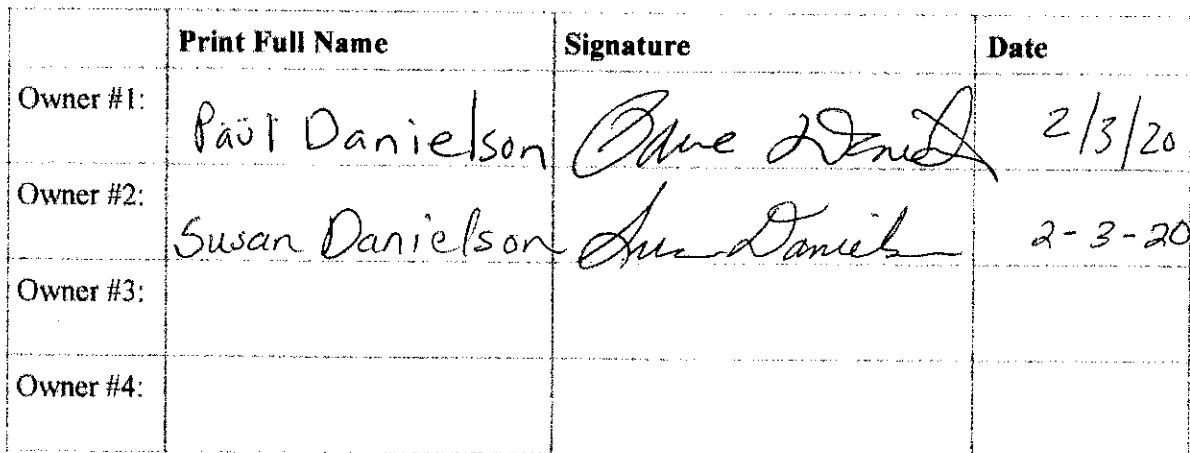 Print Full Name Signature Date
Owner #1: Paul Danielson 2/3/20
Owner #2: Susan Danielson Sue Daniels 2-3-20
Owner #3:
Owner #4: